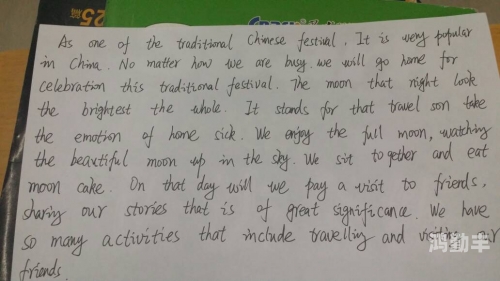 25篇
As one of the traditional Chinese festival. It is very popular
in China. No matter how we are busy. we will go home for
celebration this traditional festival. The moon that night look
the brightest the whole. It stands for that travel son take
the emotion of home sick. We enjoy the full moon, watching
the beautiful moon up in the sky. We sit together and eat
moon cake. On that day will we pay a visit to friends,
sharing our stories that is of great significance. We have
so many activities that include travelling and visiting our
friends.
鸿勤丰